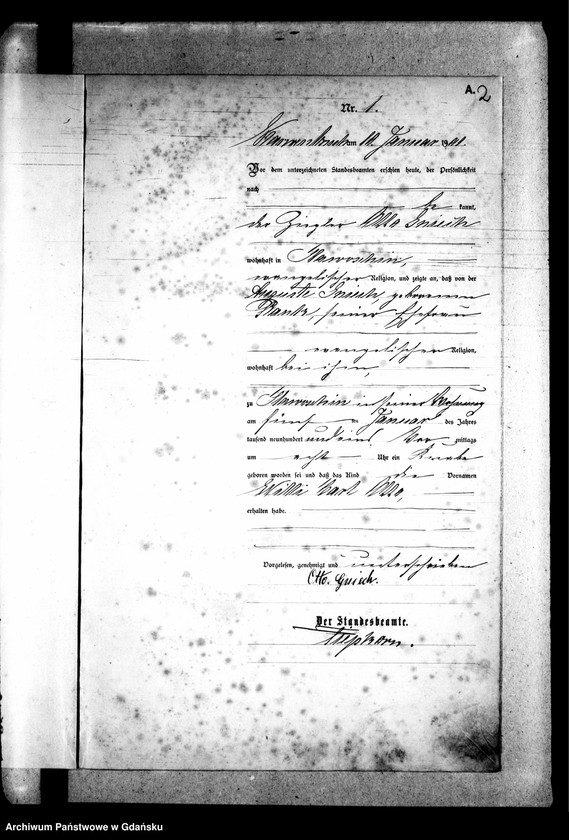 A. 2
Nr. 1.
am 10. Januar 1901.
Vor dem unterzeichneten Standesbeamten erschien heute, der Persönlichkeit
nach
be kannt,
der Ziegler Otto
wohnhaft in
evangelischer Religion, und zeigte an, daß von der
Auguste geborenen
seiner Ehefrau
evangelischer Religion,
wohnhaft bei ihm,
zu in seiner Wohnung
am fünf ten Januar des Jahres
tausend neunhundert und eins Vor mittags
um acht Uhr ein Knabe
geboren worden sei und daß das Kind die Vornamen
Willi Carl Otto,
erhalten habe.
Vorgelesen, genehmigt und unterschrieben
Otto
Der Standesbeamte.
Archiwum Państwowe w Gdańsku